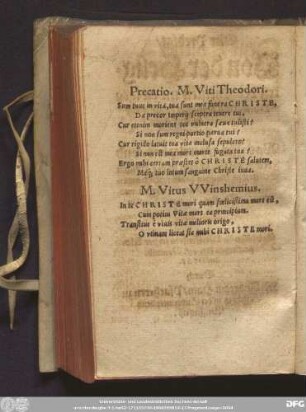 Precatio. M. Viti Theodori.
Sum tuus in vita, tua sunt mea funera CHRISTE,
Da precor imperij sceptra tenere tui,
Cur etenim moriens tot vulnera saeva tulisti?
Si non sum regni portio parva tui?
Cur rigido latuit tua vita inclusa sepulcro?
Si non est mea mors morte fugata tua?
Ergo mihi certam praestes ô CHRISTE salutem,
Meque tuo lotum sanguine Christe iuva.
M. Vitus VVinshemius.
In te CHRISTE mori quàm foelicissima mors est,
Cum potius Vitae mors ea principium.
Transitus è vitijs vitae melioris origo,
O utinam liceat sic mihi CHRISTE mori.